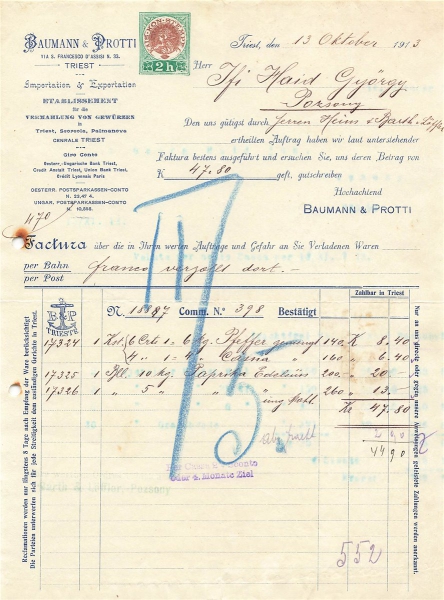 BAUMANN & PROTTI
114 S. FRANCESCO D'ASSISI N. 32.
TRIEST
Importation & Exportation
ETABLISSEMENT
für die
VERMAHLUNG VON GEWÜRZEN
in
Triest, Servola, Palmanova
CENTRALE TRIEST
Giro Conto
Oesterr.-Ungarische Bank Triest,
Credit Anstalt Triest, Union Bank Triest,
Crédit Lyonnais Paris
OESTERR. POSTSPARKASSEN-CONTO
UNGAR. POSTSPARKASSEN-CONTO
2 h
Triest, den 13 Oktober 1913
Herr
Ifj Haid György
Pozsony
Den uns gütigst durch Herren Heim & Barth
ertheilten Auftrag haben wir laut untenstehender
Faktura bestens ausgeführt und ersuchen Sie, uns deren Betrag von
K 47.80 gefl. gutschreiben
Hochachtend
BAUMANN & PROTTI
Factura über die in Ihren werten Auftrage und Gefahr an Sie Verladenen Waren
per Bahn
per Post
franco verzollt dort.—
Zahlbar in Triest
B & P
TRIESTE
N. 18887 Comm. N.º 398 Bestätigt
17324 1 6 Kg. Pfeffer 140 K 8.40
1 4 " 160 " 6.40
17325 1 10 Kg. Paprika Edelsüss 200.- " 20.-
17326 1 " 5 " " " 260 " 13.-
K 47.80
2 90
44 90
II
75
oder 3. Monate Ziel
552
Reclamationen werden nur längstens 8 Tage nach Empfang der Ware berücksichtigt
Die Parteien unterwerfen sich für jede Streitigkeit dem zuständigen Gerichte in Triest.
Nur an uns direct oder gegen unsere Anweisungen geleistete Zahlungen werden anerkannt.